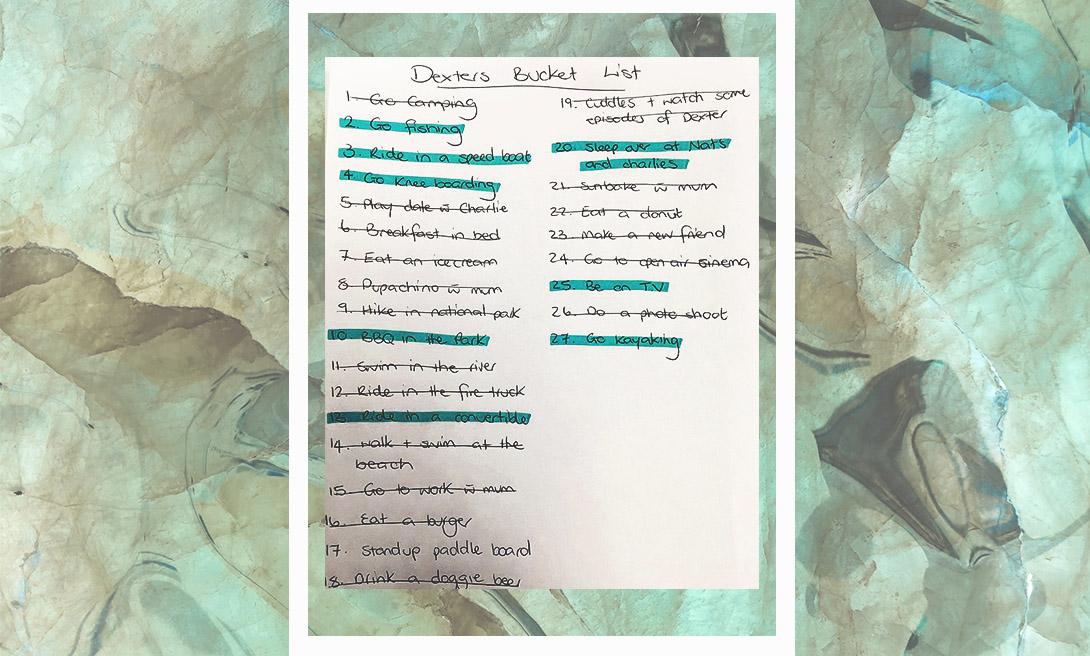 Dexters Bucket List
1. Go Camping
2. Go fishing
3. Ride in a speed boat
4. Go Knee boarding
5. Play date w̄ Charlie
6. Breakfast in bed
7. Eat an icecream
8. Pupachino w̄ mum
9. Hike in national park
10. BBQ in the Park
11. Swim in the river
12. Ride in the fire truck
13. Ride in a convertible
14. walk + swim at the
beach
15. Go to work w̄ mum
16. Eat a burger
17. Standup paddle board
18. Drink a doggie beer
19. cuddles + watch some
episodes of Dexter
20. Sleep over at Nats
and charlies
21. Sunbake w̄ mum
22. Eat a donut
23. Make a new friend
24. Go to open air cinema
25. Be on T.V
26. Do a photo shoot
27. Go kayaking